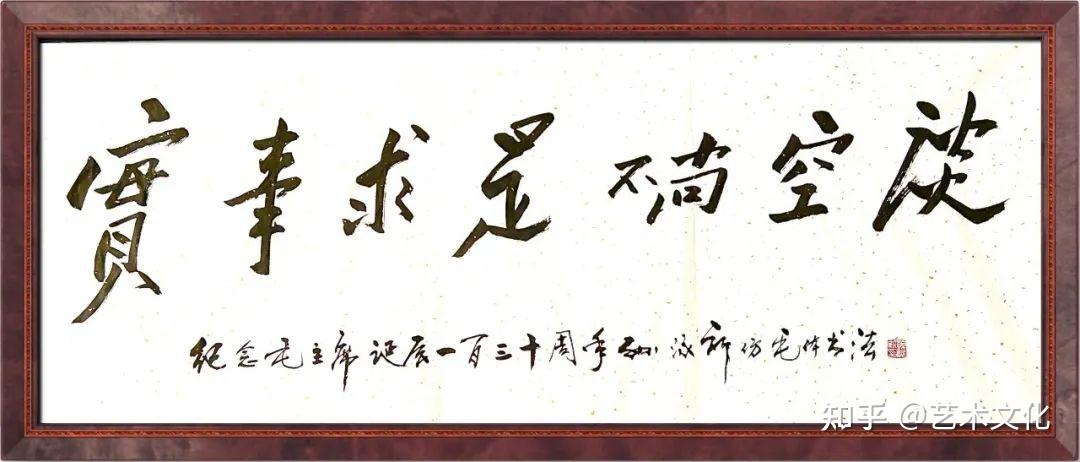 實事求是不尚空談
纪念毛主席诞辰一百三十周年 仿毛体书法
知乎 @艺术文化